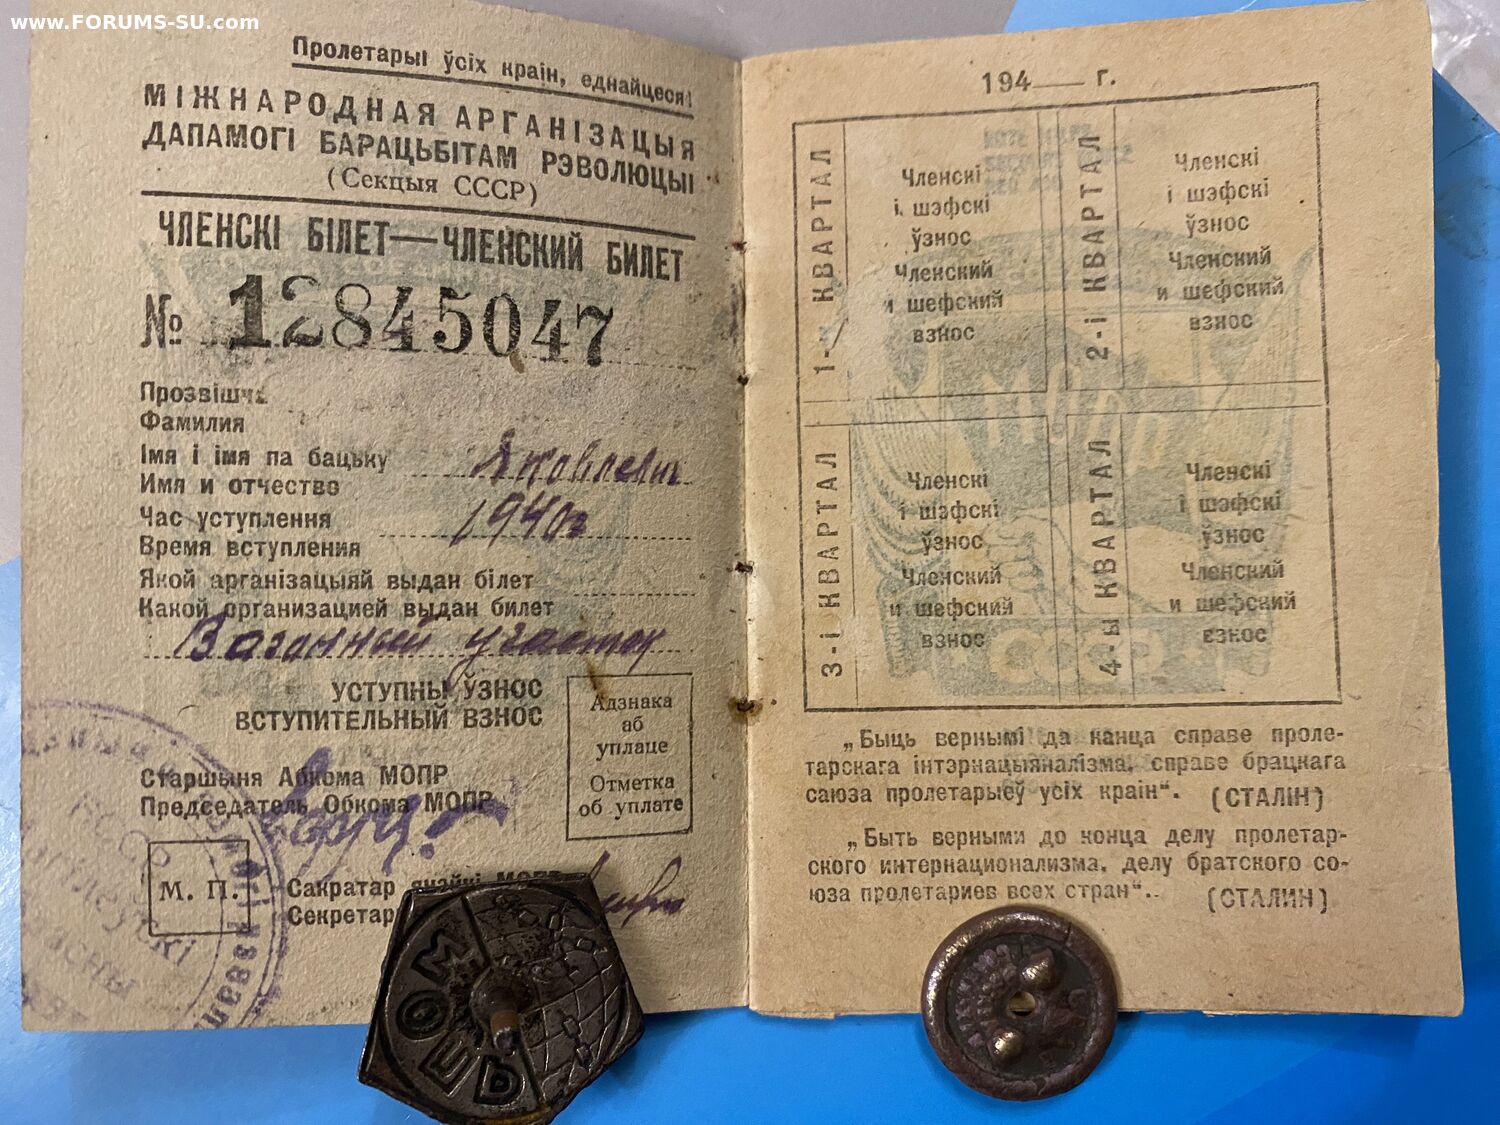 www.FORUMS-SU.com
Пролетарыі ўсіх краін, еднайцеся!
МІЖНАРОДНАЯ АРГАНІЗАЦЫЯ
ДАПАМОГІ БАРАЦЬБІТАМ РЭВОЛЮЦЫІ
(Секцыя СССР)
ЧЛЕНСКІ БІЛЕТ—ЧЛЕНСКИЙ БИЛЕТ
№ 12845047
Прозвішча
Фамилия
Імя і імя па бацьку
Имя и отчество
Яковлевич
Час уступлення
Время вступления
1940г
Якой арганізацыяй выдан білет
Какой организацией выдан билет
участок
УСТУПНЫ ЎЗНОС
ВСТУПИТЕЛЬНЫЙ ВЗНОС
Адзнака
аб
уплаце
Отметка
об уплате
Старшыня Абкома МОПР
Председатель Обкома МОПР
М. П.
Сакратар ячэйкі МОПР
Секретарь
МОПР
194 г.
1-ы КВАРТАЛ
Членскі
і шэфскі
ўзнос
Членский
и шефский
взнос
2-і КВАРТАЛ
Членскі
і шэфскі
ўзнос
Членский
и шефский
взнос
3-і КВАРТАЛ
Членскі
і шэфскі
ўзнос
Членский
и шефский
взнос
4-ы КВАРТАЛ
Членскі
і шэфскі
ўзнос
Членский
и шефский
взнос
МОПР
СССР
„Быць вернымі да канца справе проле-
тарскага інтэрнацыяналізма, справе брацкага
саюза пролетарыеў усіх краін“. (СТАЛІН)
„Быть верными до конца делу пролетар-
ского интернационализма, делу братского со-
юза пролетариев всех стран“.. (СТАЛИН)